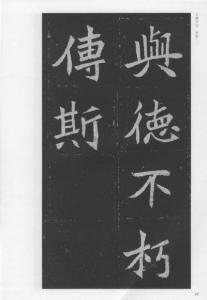 與德不朽
傳斯